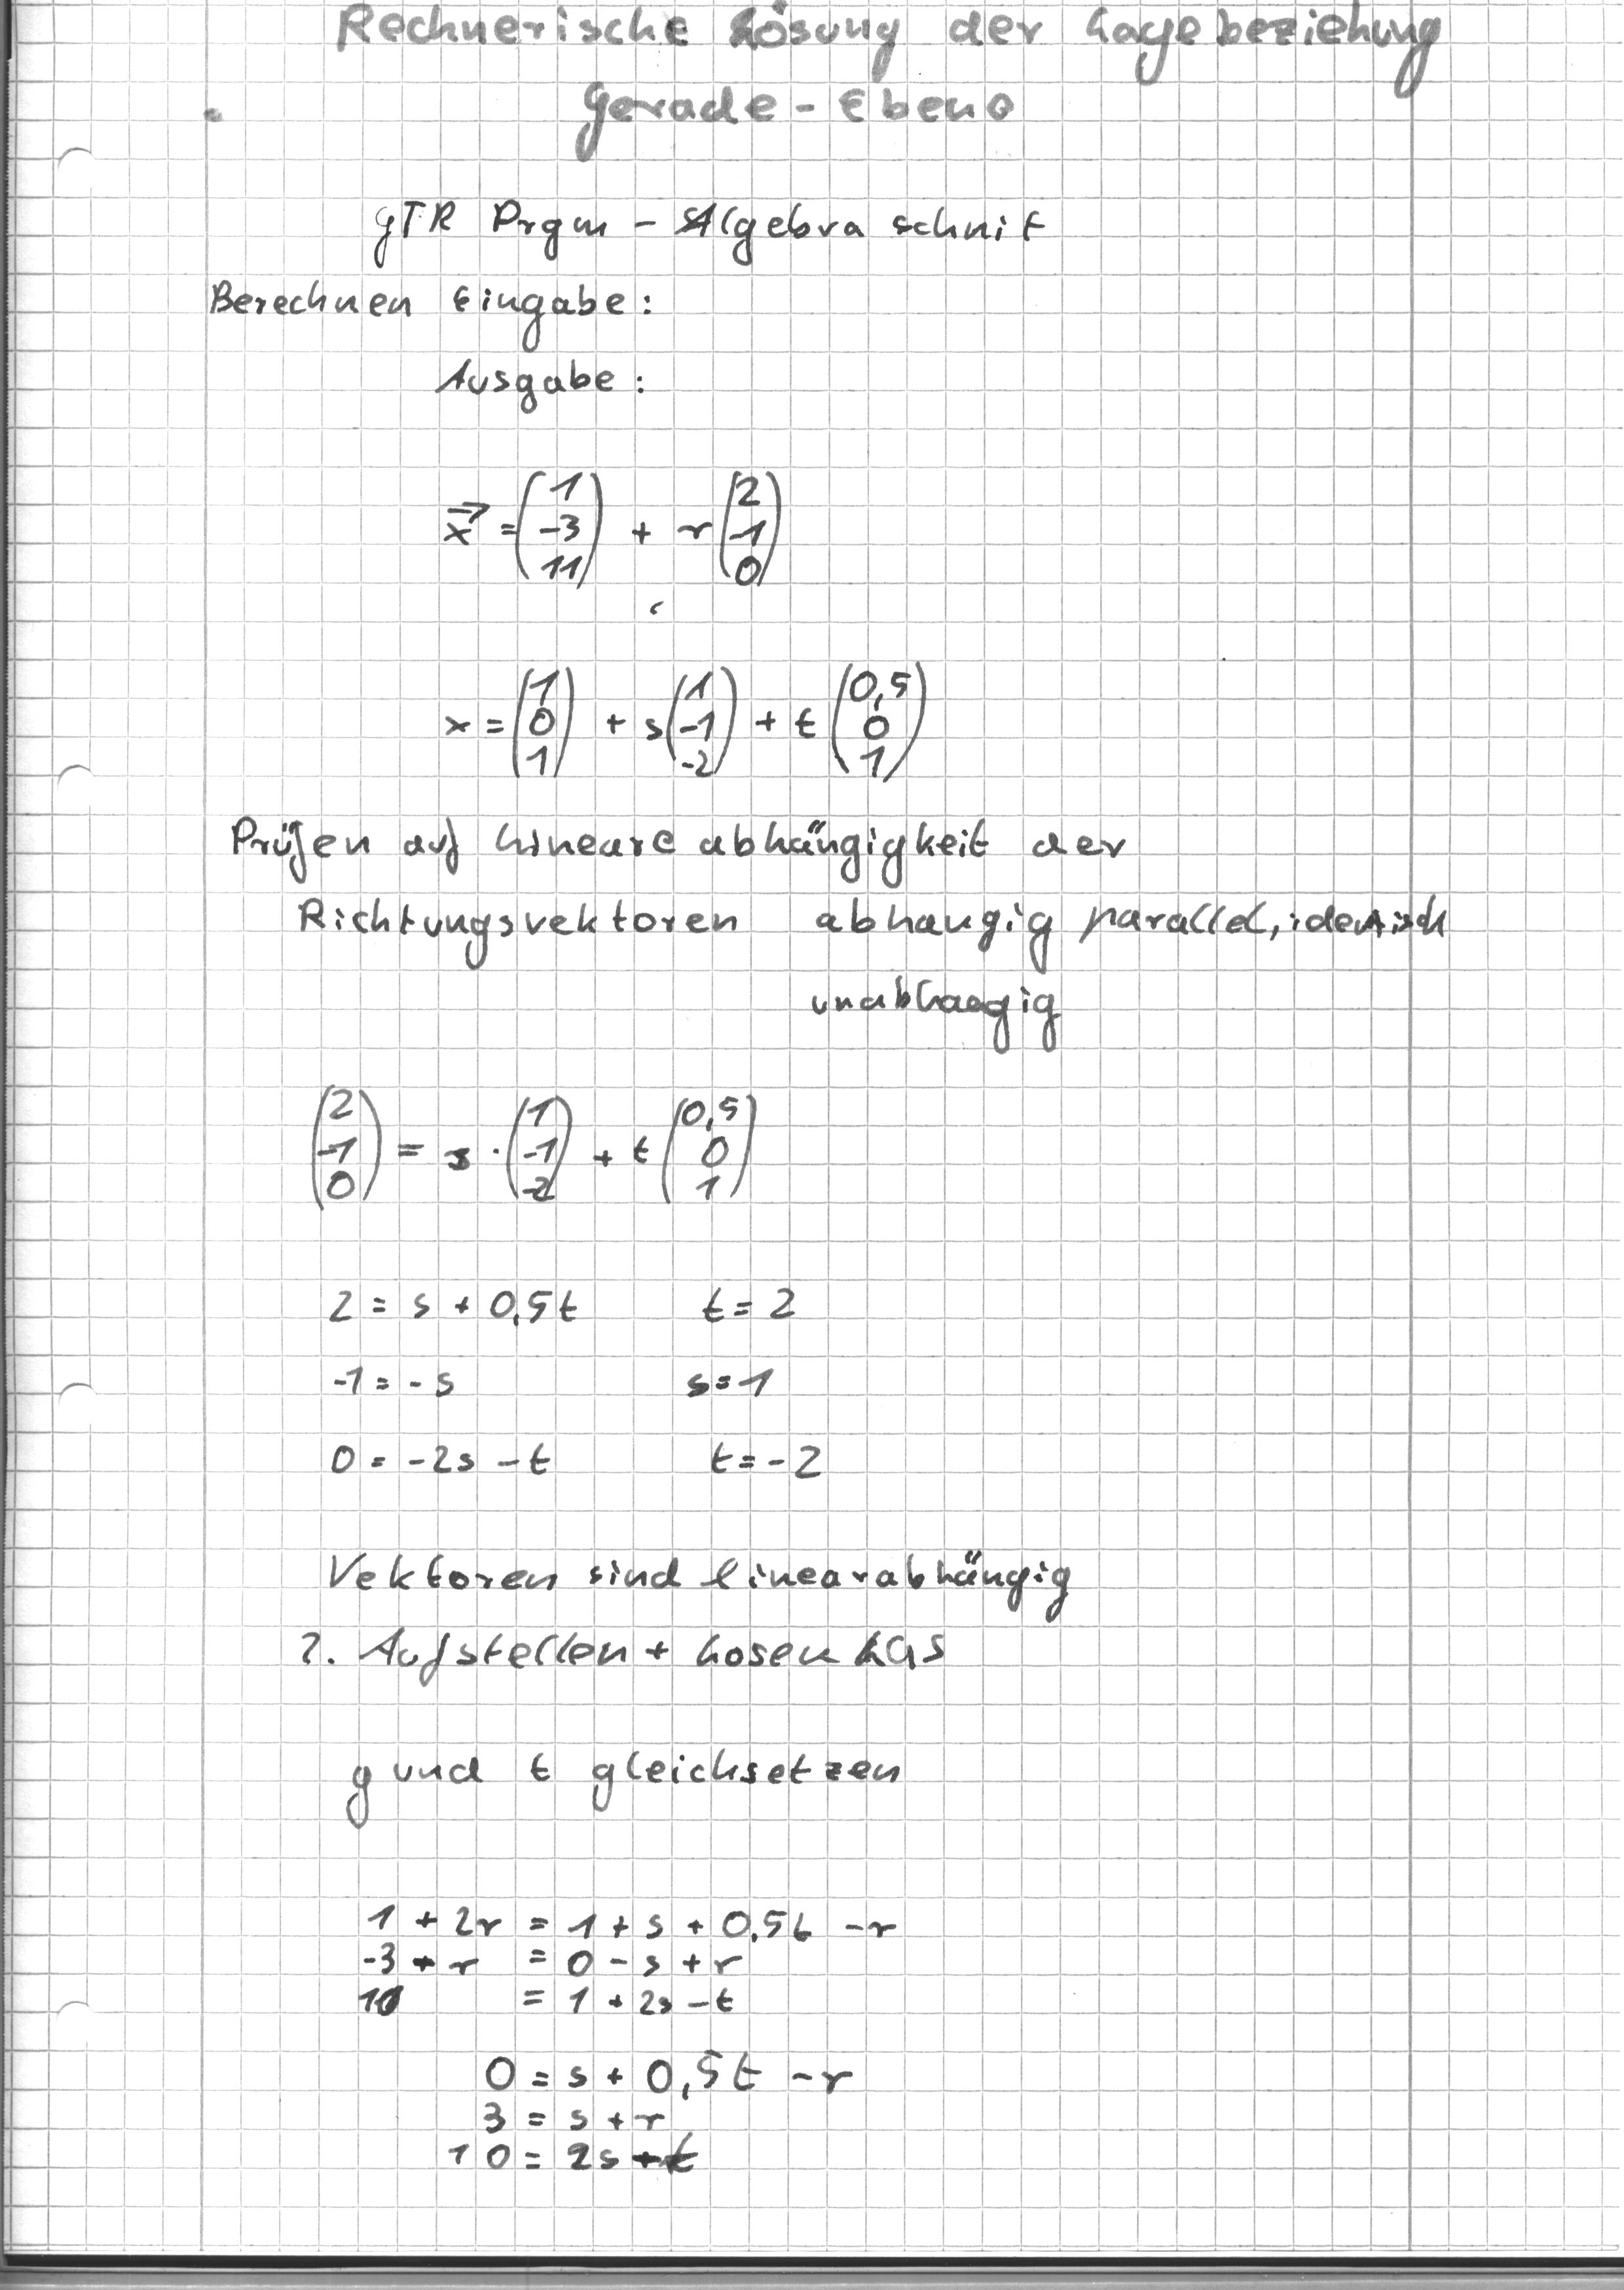 Rechnerische Lösung der Lagebeziehung
Gerade - Ebene
GTR Prgm - Algebra schnit
Berechnen Eingabe:
Ausgabe:
x⃗ = (1 -3 11) + r (2 -1 0)
x = (1 0 1) + s (1 -1 -2) + t (0,5 0 1)
Prüfen auf Lineare abhängigkeit der
Richtungsvektoren abhangig parallel, identisch
unabhangig
(2 -1 0) = s · (1 -1 -2) + t (0,5 0 1)
2 = s + 0,5t t = 2
-1 = - s s = 1
0 = -2s - t t = -2
Vektoren sind linearabhängig
2. Aufstellen + Losen LGS
g und t gleichsetzen
1 + 2r = 1 + s + 0,5t - r
-3 + r = 0 - s + r
10 = 1 + 2s - t
0 = s + 0,5t - r
3 = s + r
10 = 2s + t